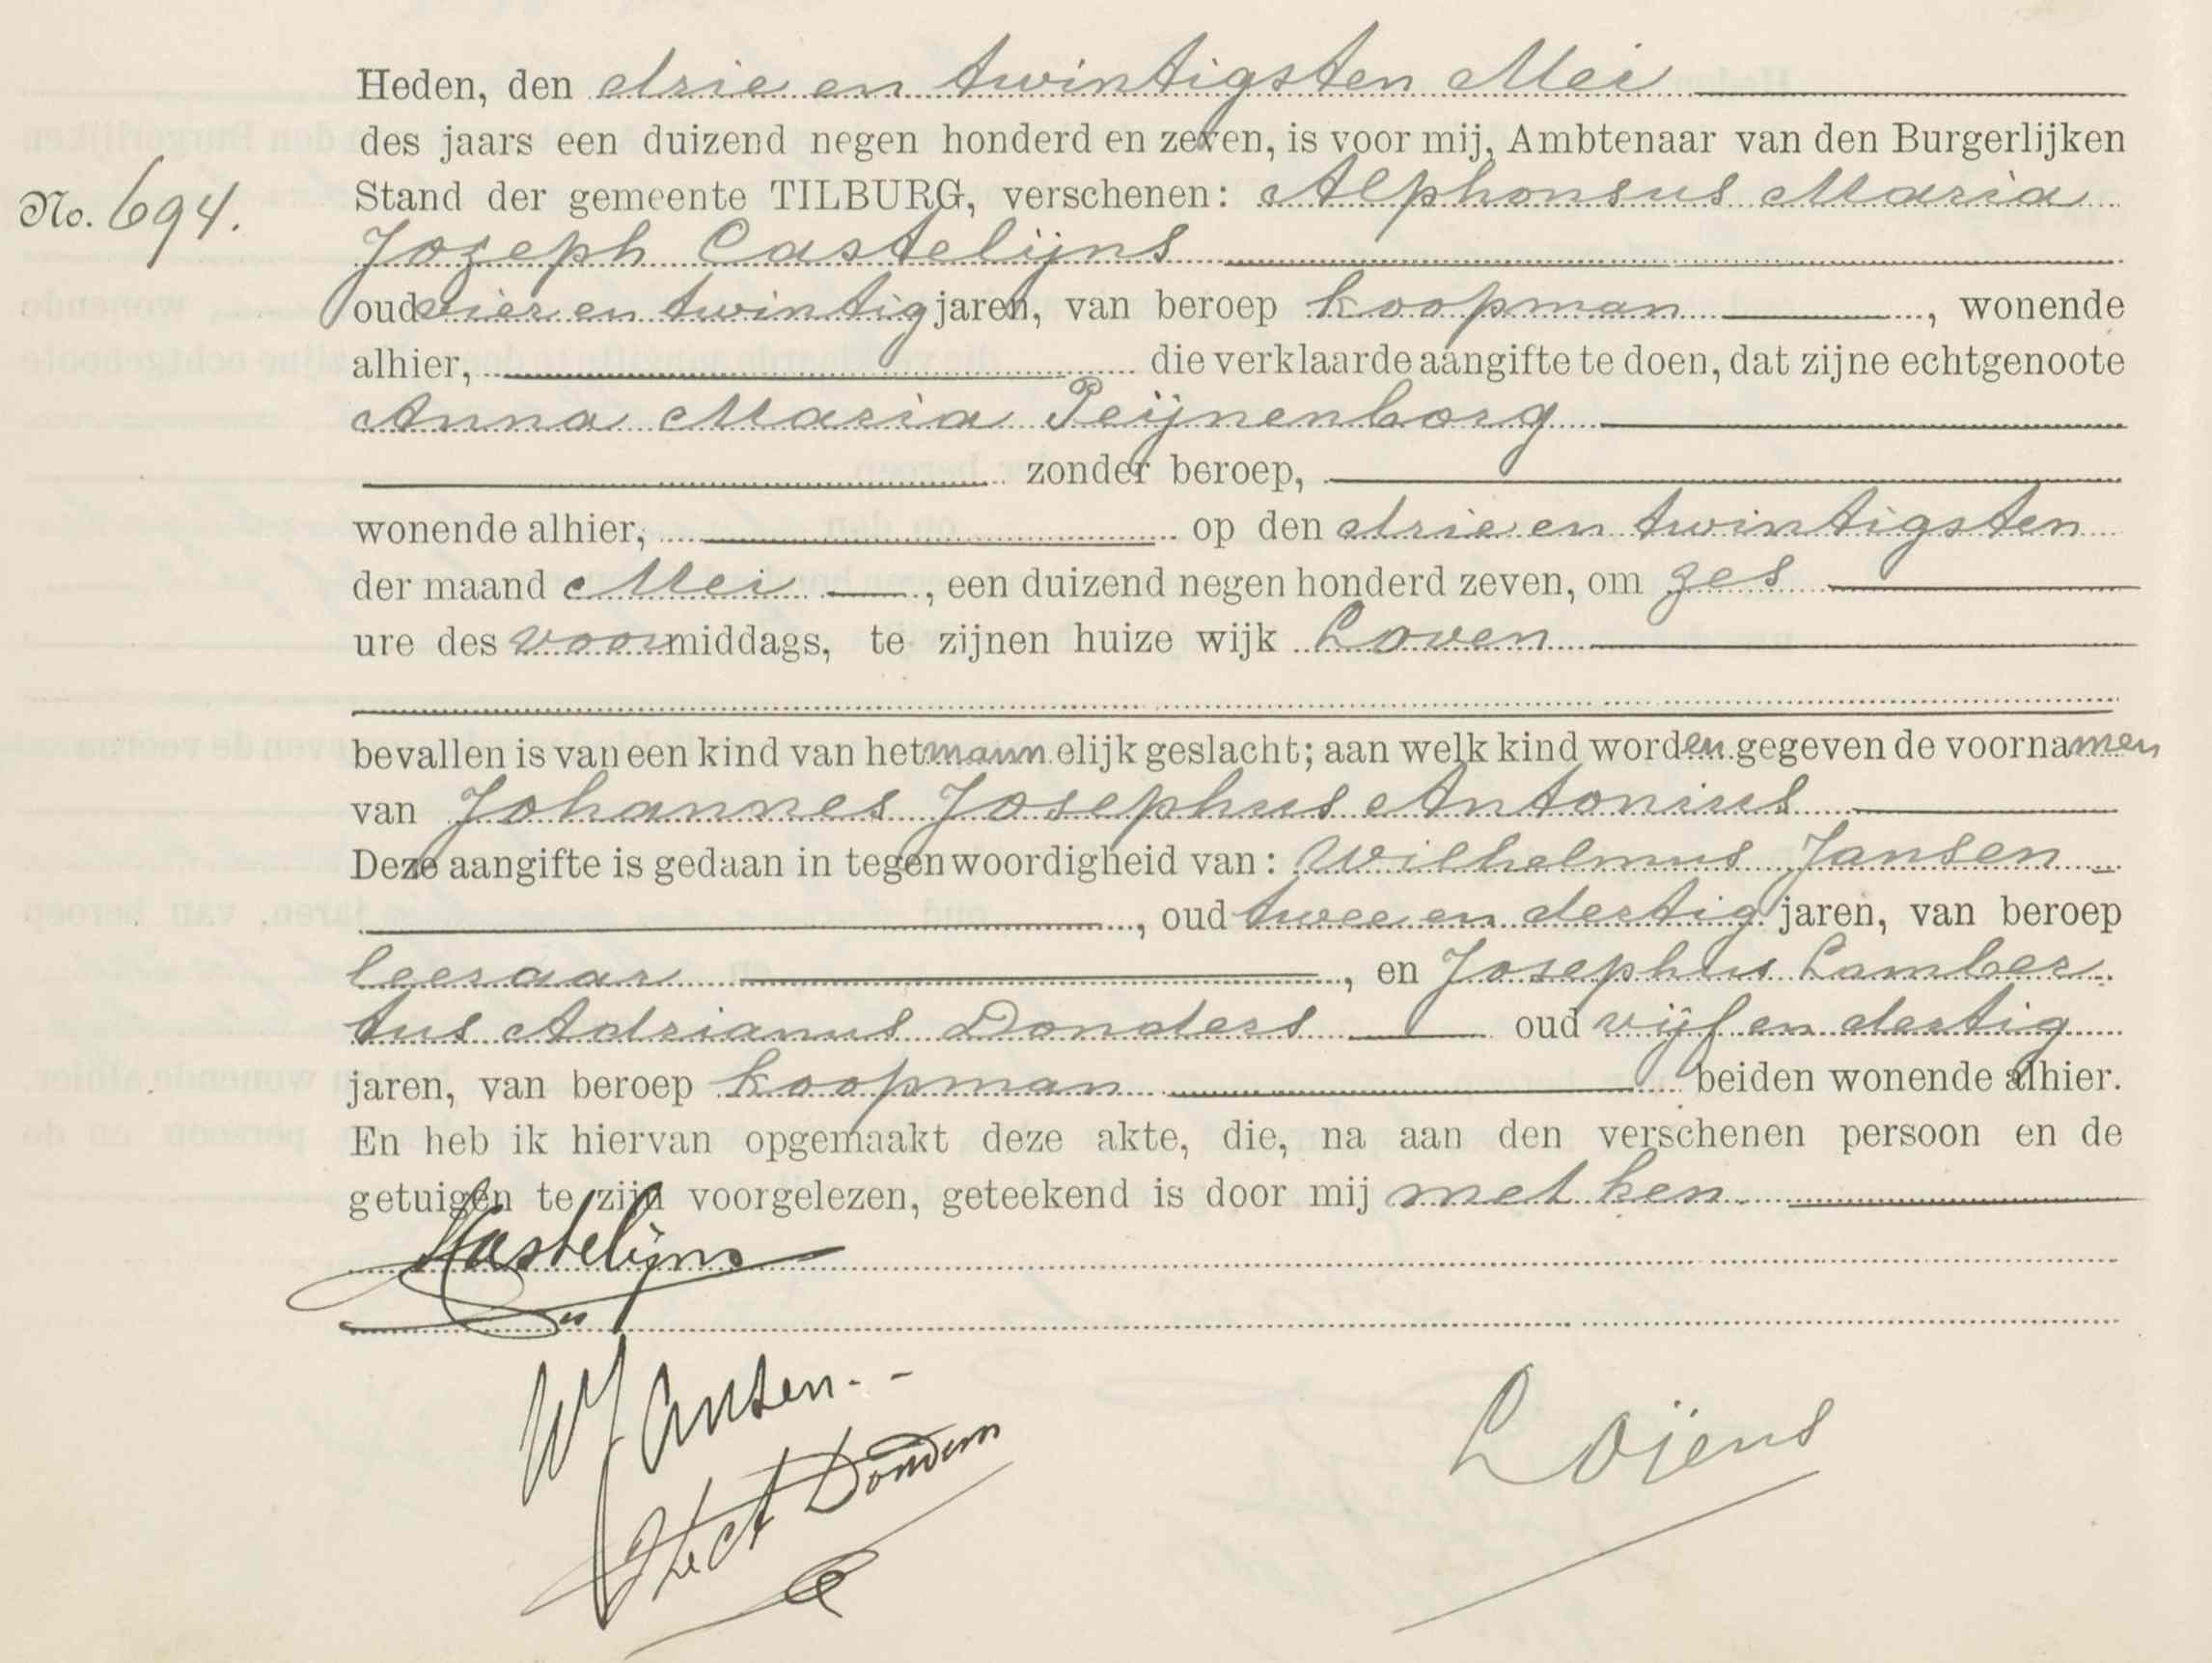 Heden, den drie en twintigsten Mei
des jaars een duizend negen honderd en zeven, is voor mij, Ambtenaar van den Burgerlijken
No. 694.
Stand der gemeente TILBURG, verschenen: Alphonsus Maria
Jozeph Castelijns
oud vier en twintig jaren, van beroep koopman, wonende
alhier, die verklaarde aangifte te doen, dat zijne echtgenoote
Anna Maria Peijnenborg
zonder beroep,
wonende alhier, op den drie en twintigsten
der maand Mei, een duizend negen honderd zeven, om zes
ure des voormiddags, te zijnen huize wijk Loven
bevallen is van een kind van het mannelijk geslacht; aan welk kind worden gegeven de voornamen
van Johannes Josephus Antonius
Deze aangifte is gedaan in tegenwoordigheid van: Wilhelmus Jansen
, oud twee en dertig jaren, van beroep
leeraar, en Josephus Lamber
tus Adrianus Donders oud vijf en dertig
jaren, van beroep koopman beiden wonende alhier.
En heb ik hiervan opgemaakt deze akte, die, na aan den verschenen persoon en de
getuigen te zijn voorgelezen, geteekend is door mij met hen
Castelijns
W Jansen
Donders
Loijens